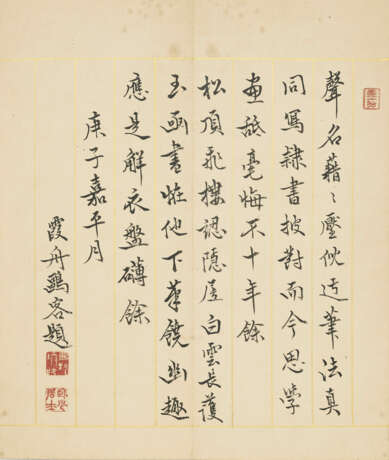 聲名藉〻壓倪迂筆法真
同寫隸書披對而今思學
畫舐毫悔不十年餘
松頂飛樓認隱居白雲長護
玉函書怪他下筆饒幽趣
應是解衣盤礴餘
庚子嘉平月
霞舟鷗客題